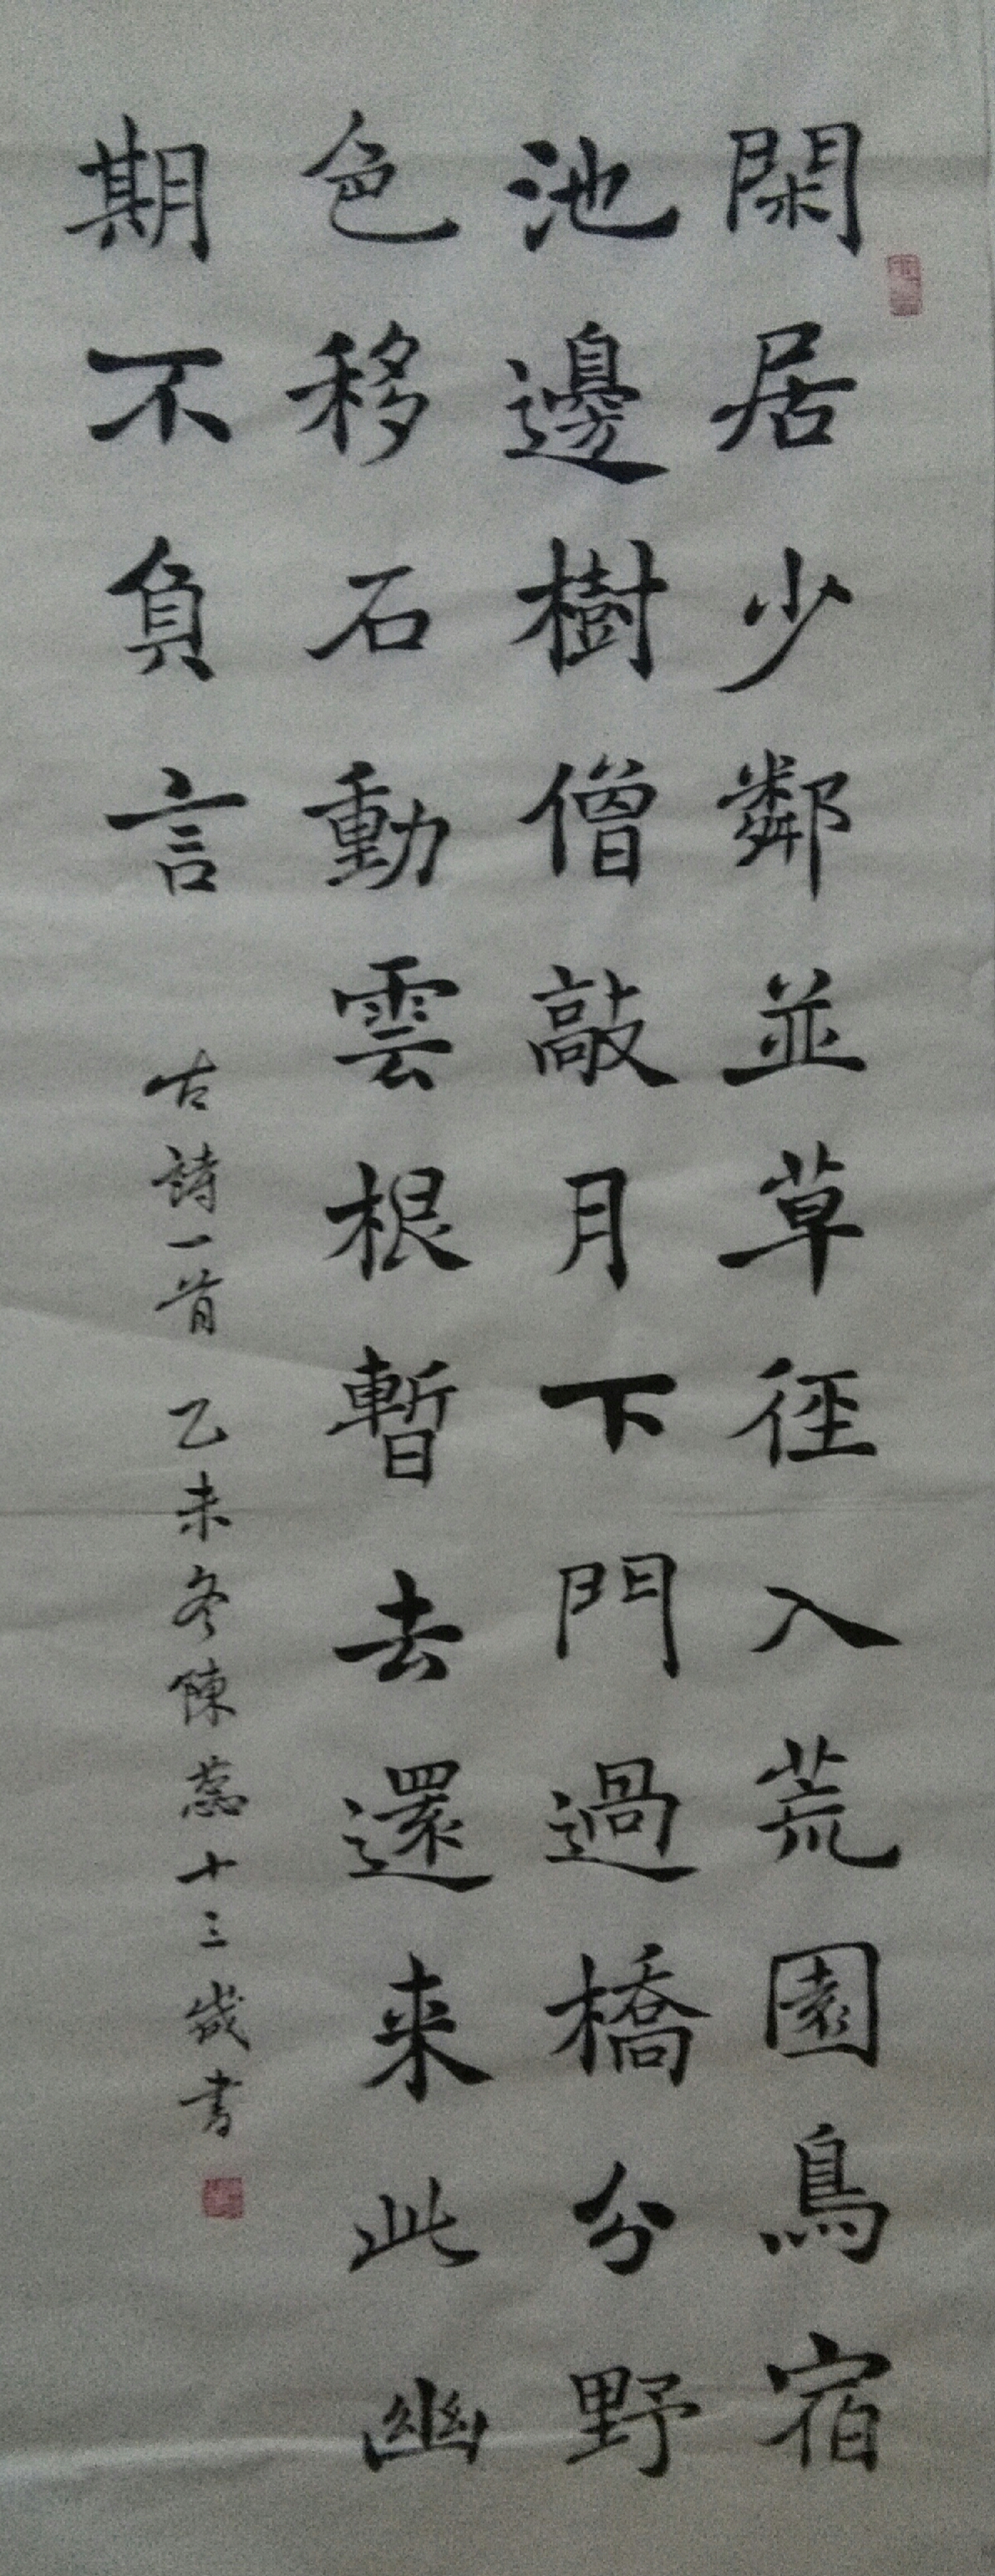 閑居少鄰並草徑入荒園鳥宿
池邊樹僧敲月下門過橋分野
色移石動雲根暫去還来此幽
期不負言
古詩一首乙未冬陳蕊十三歲書